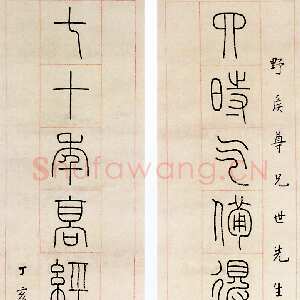 野侯尊兄世先生
四時气備
七十年高經
丁亥
Shufawang.CN